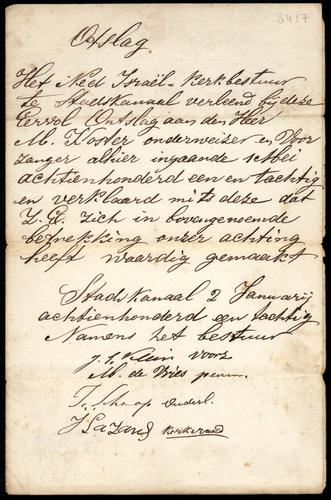 3417
Otslag
Het Ned Israël- Kerkbestuur
te Stadskanaal verleend bij deze
Eervol Ontslag aan den Heer
M. Koster onderweiser en Voor
zanger alhier ingaande 1 Mei
achtienhonderd een en tachtig
en verklaard mits deze dat
Z. Ed. zich in bovengenoemde
betrekking onzer achting
heeft waardig gemaakt
Stadskanaal 2 Januarij
achtienhonderd een tachtig
Namens het bestuur
Klein voorz
M. de Vries penn.
Schaap ouderl.
Hazand kerkeraad